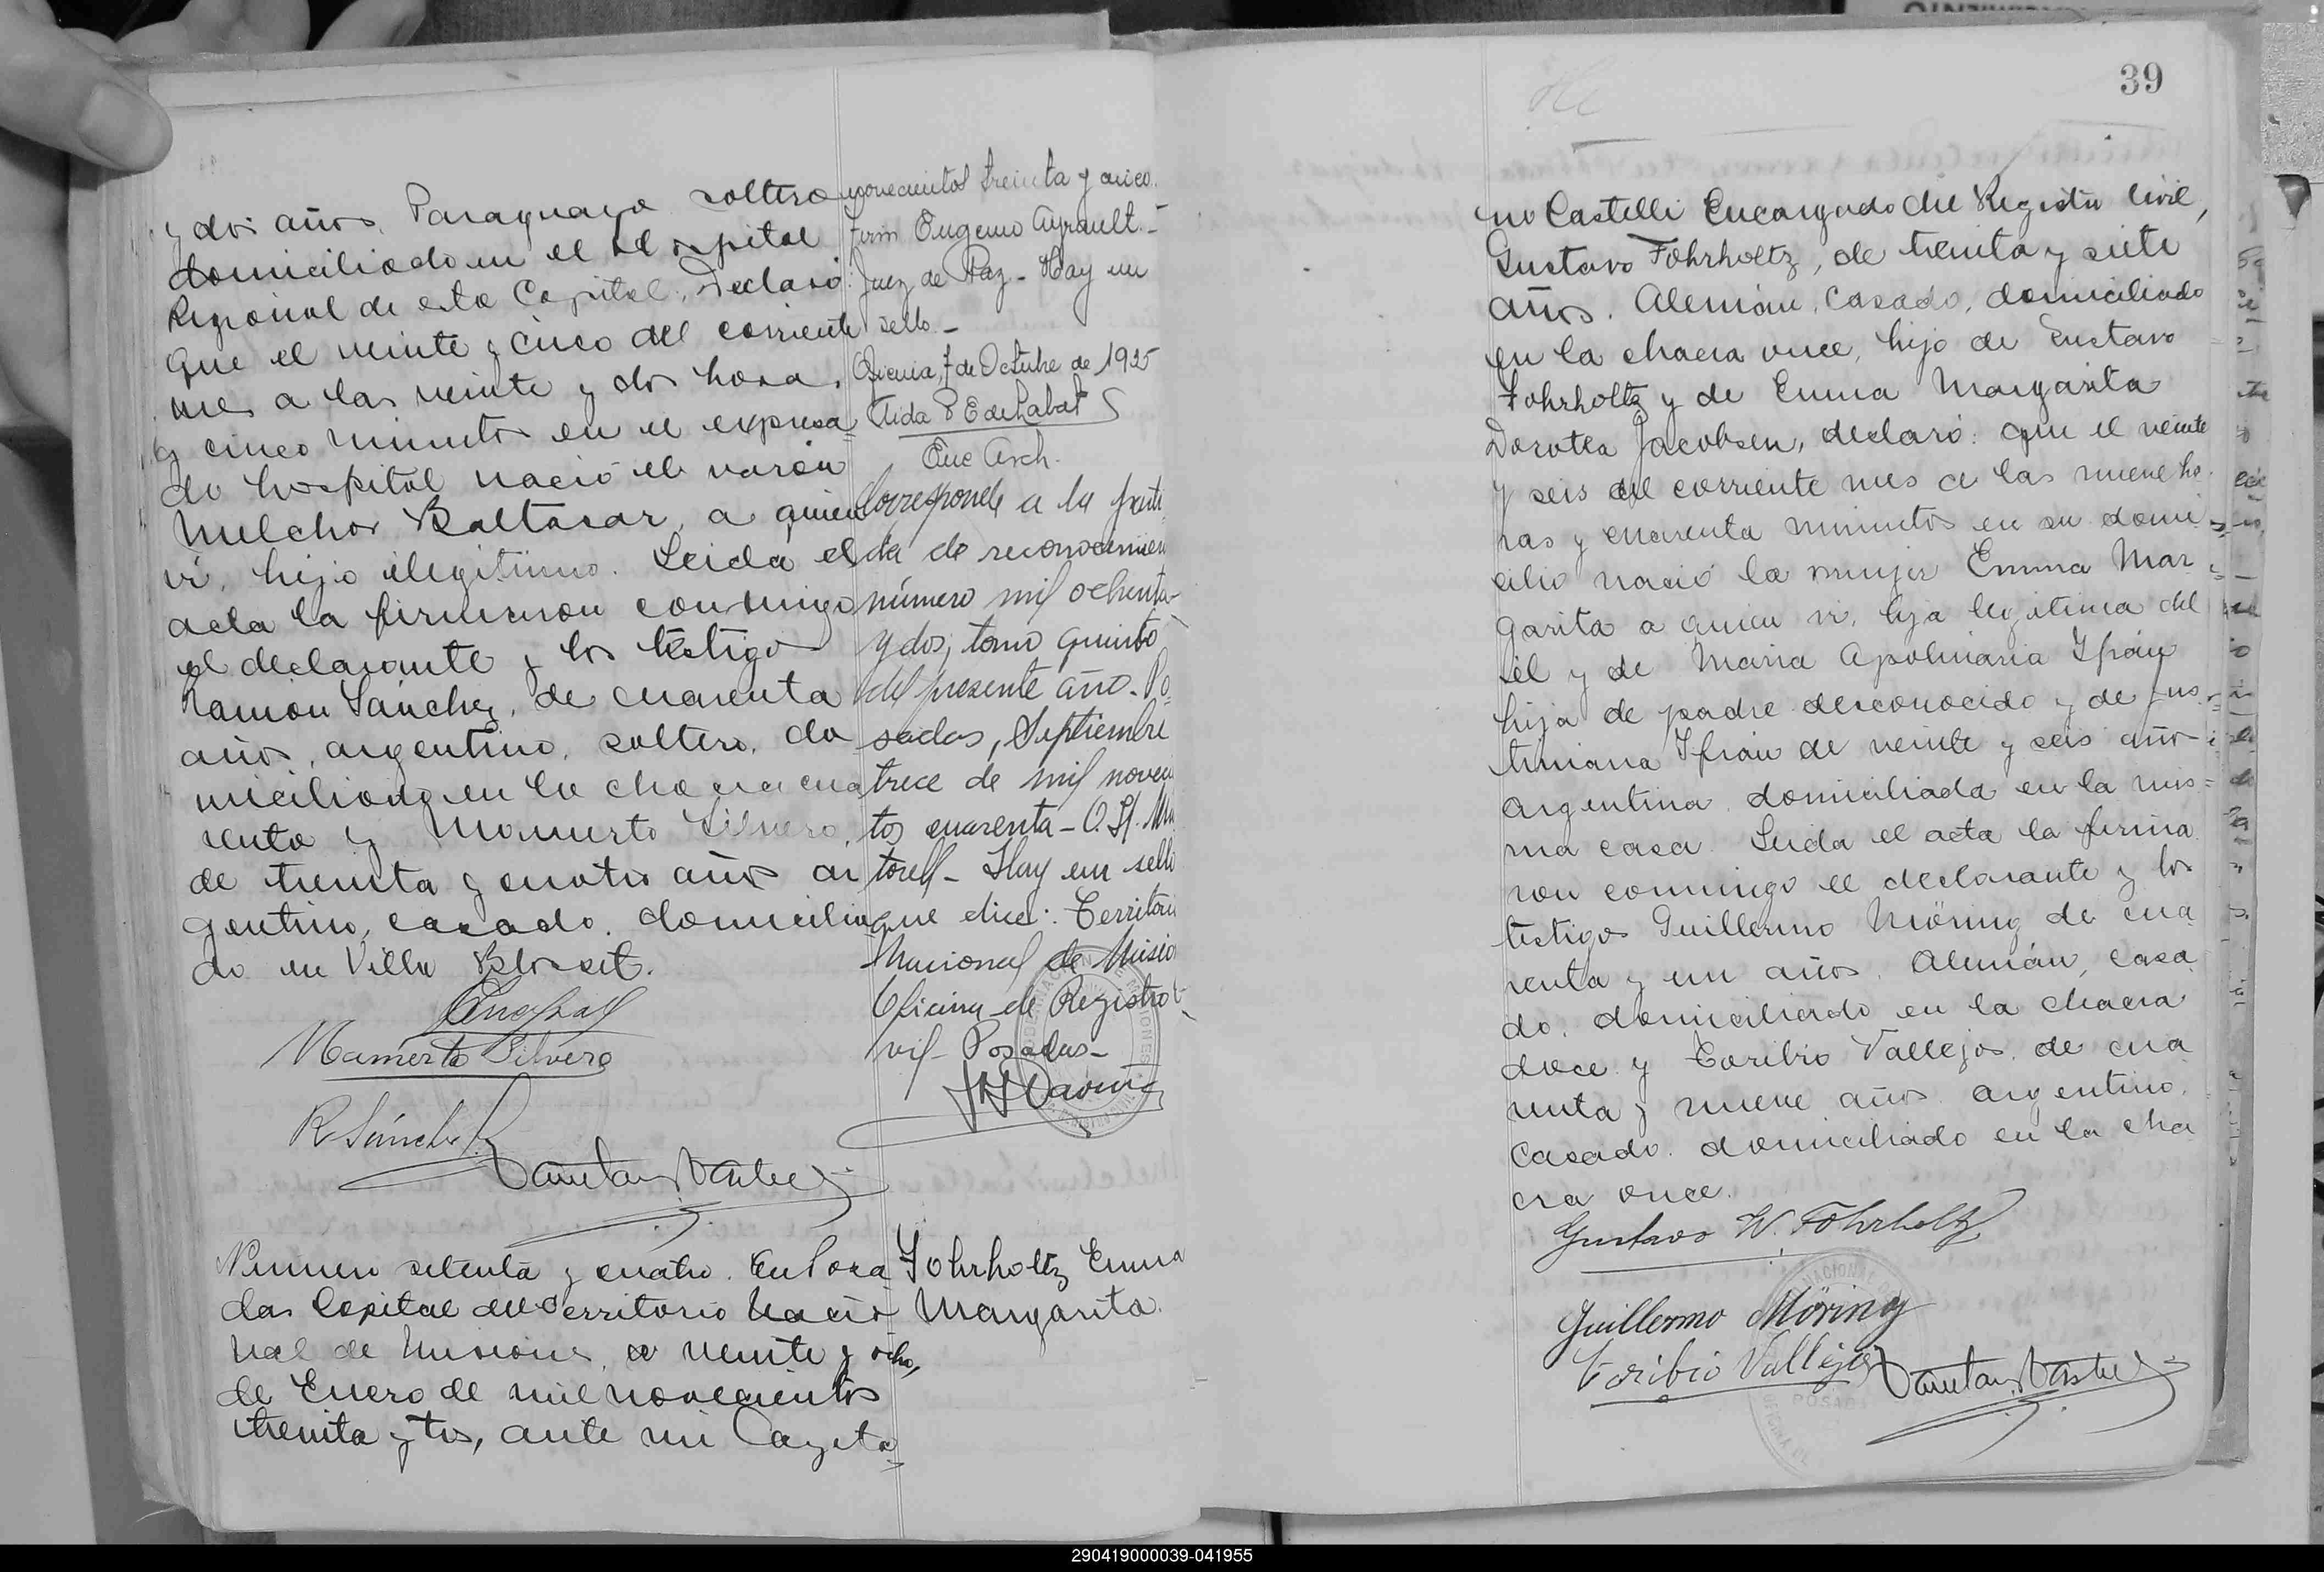 39
y dos años, Paraguayo soltero
domiciliado en el Hospital
Regional de esta Capital, Declaró:
Que el veinte y cinco del corriente
mes a las veinte y dos horas
y cinco minutos en el expresa
do hospital nació el varón
Melchor Baltasar, a quien
vi, hijo ilegitimo. Leida el
acta la firmaron conmigo
el declarante y los testigos
Ramón Sánchez, de cuarenta
años, argentino, soltero, do
miciliado en la chacra cua
renta y Mamerto Silvero,
de treinta y cuatro años ar
gentino, casado, domicilia
do en Villa Blosset.
Mamerto Silvero
R Sánchez
novecientos treinta y cinco.
firm Eugenio Ayrault.-
Juez de Paz - Hay un
sello.-
Oficina, 7 de Octubre de 1935
Aida P E de Labat
Enc Arch.
Corresponde a la parti
da de reconocimien
número mil ochenta
y dos, tomo quinto
del presente año. Po
sadas, Septiembre
trece de mil novecien
tos cuarenta - O. H.
Hay un sello
que dice: Territorio
Nacional de Misio
Oficina de Registro
vil - Posadas -
Número setenta y cuatro. En Posa
das Capital del Territorio Nacio
nal de Misiones, a veinte y ocho,
de Enero de mil novecientos
treinta y tres, ante mi Cayeta
Fohrholtz Emma
Margarita.
no Castelli Encargado del Registro Civil,
Gustavo Fohrholtz, de treinta y siete
años, Alemán, casado, domiciliado
en la chacra once, hijo de Gustavo
Fohrholtz y de Emma Margarita
Dorotea Jacobsen, declaró: que el veinte
y seis del corriente mes a las nueve ho
ras y cuarenta minutos en su domi
cilio nació la mujer Emma Mar
garita a quien vi, hija legitima del
él y de Maria Apolinaria Ifrán
hija de padre desconocido y de Jus
tiniana Ifrán de veinte y seis años
argentina, domiciliada en la mis
ma casa. Leida el acta la firma
ron conmigo el declarante y los
testigos Guillermo Möring de cua
renta y un años, Alemán, casa
do, domiciliado en la chacra
doce y Toribio Vallejos, de cua
renta y nueve años, argentino,
casado, domiciliado en la cha
cra once.
Gustavo W. Fohrholtz
Guillermo Möring
Toribio Vallejos
290419000039-041955